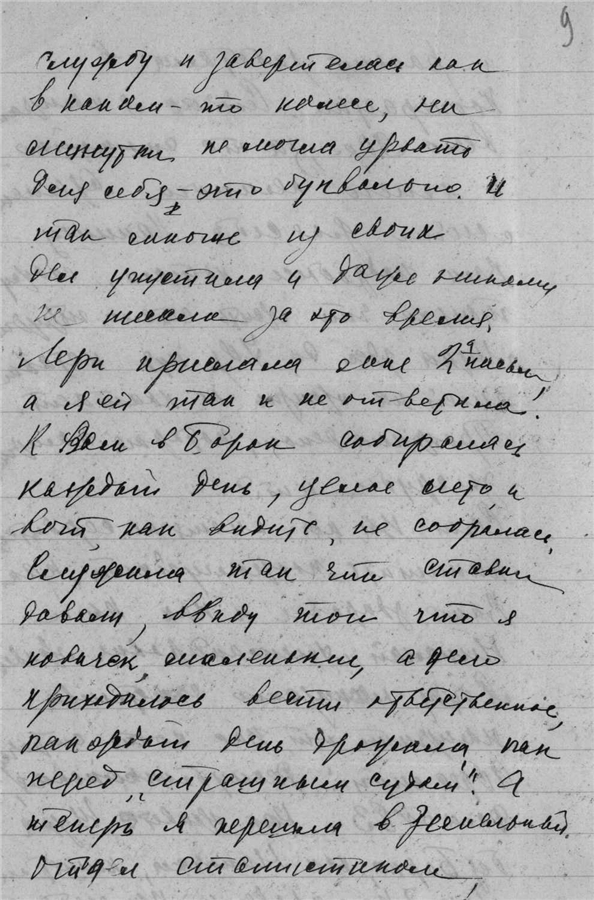 9
службу и завертелась как
в каком-то колесе, ни
минутки не могла урвать
для себя – это буквально. И
так многие из своих
дел упустила и даже никому
не писала за это время.
Лери прислала мне 2 письма,
а я ей так и не ответила.
К Вам в Борок собиралась
каждый день, целое лето, и
вот, как видите, не собралась.
Служила так что ставки
давали, ввиду того что я
новичек, маленькие, а дело
приходилось вести ответственное,
каждый день дрожала, как
перед „страшным судом“. А
теперь я перешла в Земельный
отдел статистиком,